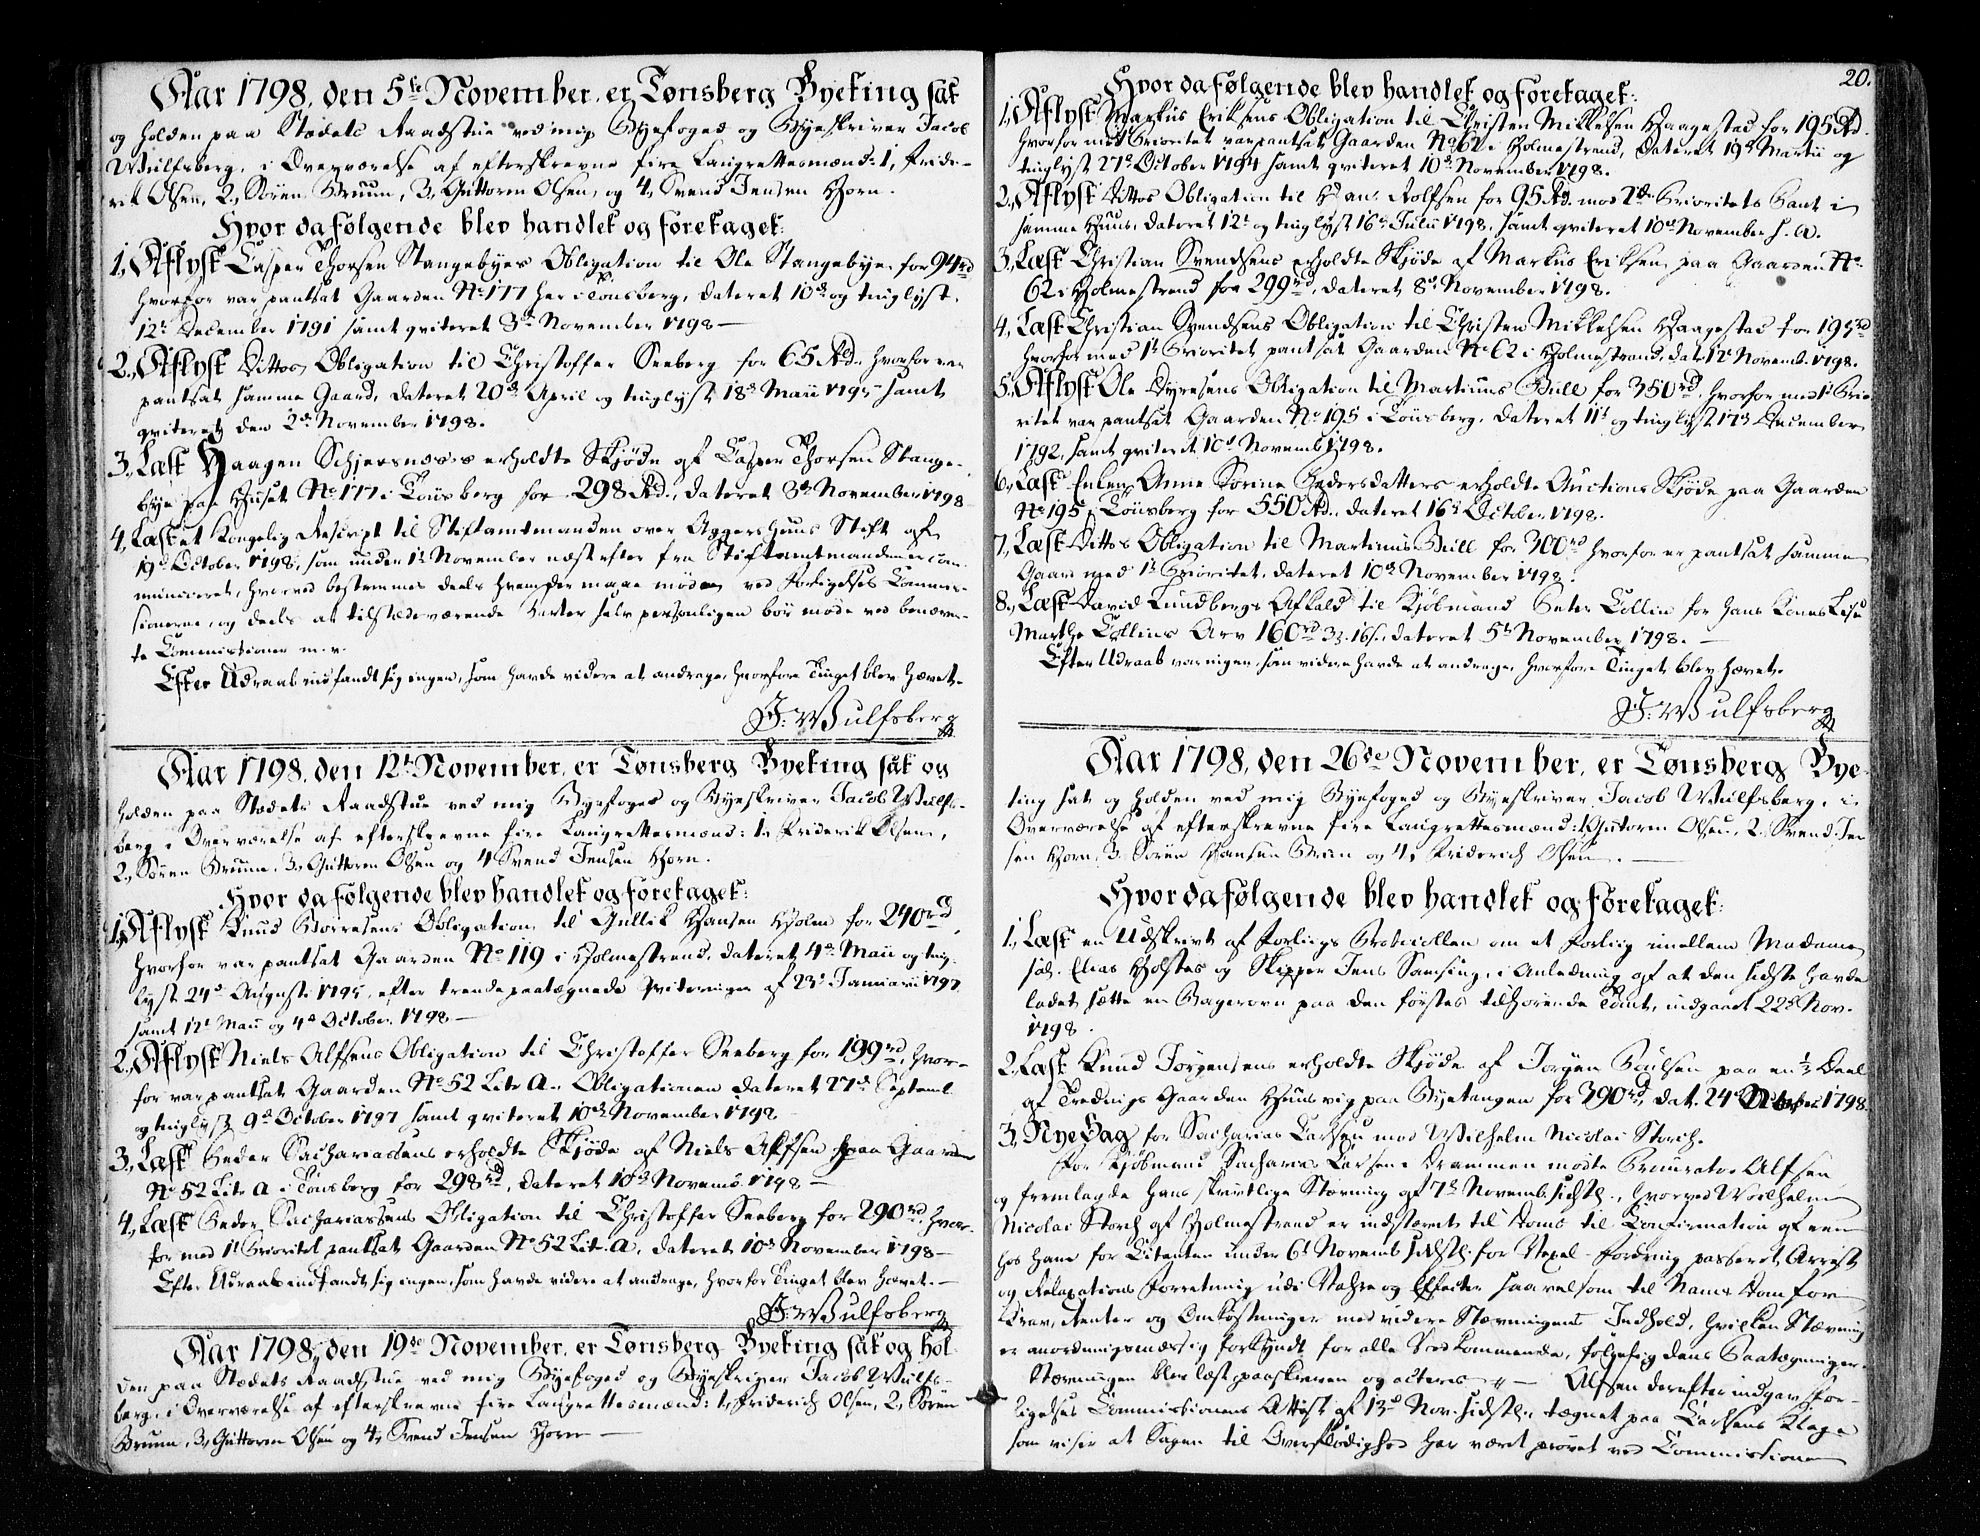 Aar 1798, den 5te November, er Tønsberg Byeting sat
og holden paa Stædets Raadstue ved mig Byefoged og Byeskriver Jacob
Wulfsberg, i Overværelse af efterskrevne fire Laugrettesmænd: 1, Fride-
rik Olsen, 2, Sören Bruun, 3, Guttorm Olsen, og 4, Svend Jensen Horn.
Hvor da følgende blev handlet og foretaget:
1, Aflyst Casper Thorsen Stangebyes Obligation til Ole Stangebye for 94rd
hvorfor var pantsat Gaarden No 177 her i Tönsberg, dateret 10de og tinglyst
12te December 1791 samt qviteret 3de November 1798 —
2, Aflyst Dittos Obligation til Christoffer Seeberg for 65 Rd. hvorfor var
pantsat samme Gaard, dateret 20de April og tinglyst 18de Maii 1795 samt
qviteret den 2de November 1798.
3, Læst Haagen Schjersnæs's erholdte Skjöde af Casper Thorsen Stange-
bye paa Huset No 177 i Tönsberg for 298 Rd., dateret 3de November 1798
4, Læst et Kongelig Rescript til Stiftamtmanden over Aggershuus Stift af
19de October 1798, som under 1te November næstefter fra Stiftamtmanden er com-
municeret, hvorved bestemmes deels hvem der maae møde ved Forligelses Commis-
sionerne, og deels at tilstædeværende Parter selv personligen bör møde ved benævn-
te Commissioner m. v.
Efter Udraab indfandt sig ingen, som havde videre at andrage, hvorfore Tinget blev hævet.
J: Wulfsberg
Aar 1798, den 12te November, er Tønsberg Byeting sat og
holden paa Stædets Raadstue ved mig Byefoged og Byeskriver Jacob Wulfs-
berg i Overværelse af efterskrevne fire Laugrettesmænd: 1, Friderik Olsen,
2, Sören Bruun, 3, Guttorm Olsen og 4 Svend Jensen Horn.
Hvor da følgende blev handlet og foretaget:
1, Aflyst Knud Börresens Obligation til Gullik Hansen Holm for 240rd,
hvorfor var pantsat Gaarden No 119 i Holmestrand, dateret 4de Maii og ting-
lyst 24de Augusti 1795, efter trende paategnede Qviteringer af 23de Januarii 1797
samt 12te Maii og 4de October 1798 —
2, Aflyst Niels Alfsens Obligation til Christoffer Seeberg for 199rd, hvor-
for var pantsat Gaarden No 52 Litr A. Obligationen dateret 27de Septemb.
og tinglyst 9de October 1797 samt qviteret 10de November 1798
3, Læst Peder Sachariassens erholdte Skjöde af Niels Alfsen paa Gaarden
No 52 Litr A i Tönsberg for 298rd, dateret 10de Novemb. 1798 —
4, Læst Peder Sachariassens Obligation til Christoffer Seeberg for 290rd, hvor-
for med 1te Prioritet pantsat Gaarden No 52 Lit. A, dateret 10de November 1798 —
Efter Udraab indfandt sig ingen, som havde videre at andrage, hvorfor Tinget blev hævet. —
J: Wulfsberg
Aar 1798, den 19de November, er Tønsberg Byeting sat og hol-
den paa Stædets Raadstue ved mig Byefoged og Byeskriver Jacob Wulfs-
berg, i Overværelse af efterskrevne fire Laugrettesmænd: 1, Friderich Olsen, 2, Sören
Bruun, 3, Guttorm Olsen og 4, Svend Jensen Horn —
20.
Hvor da følgende blev handlet og foretaget:
1, Aflyst Markus Eriksens Obligation til Christen Mikkelsen Haagestad for 195 Rd.
hvorfor med Prioritet var pantsat Gaarden No 62 i Holmestrand, dateret 19de Martii og
tinglyst 27de October 1794 samt qviteret 10de November 1798.
2, Aflyst Dittos Obligation til Hans Rolfsen for 95 Rd. mod 2de Prioritets Pant i
samme Huus, dateret 12te og tinglyst 16de Julii 1798, samt qviteret 10de November s. A.
3, Læst Christian Svendsens erholdte Skjöde af Markus Eriksen paa Gaarden No
62 i Holmestrand for 299rd, dateret 8de November 1798.
4, Læst Christian Svendsens Obligation til Christen Mikkelsen Haagestad for 195rd
hvorfor med 1te Prioritet pantsat Gaarden No 62 i Holmestrand, dat. 12te Novemb. 1798.
5, Aflyst Ole Dyresens Obligation til Martinus Bull for 350rd, hvorfor med 1te Prio-
ritet var pantsat Gaarden No 195 i Tönsberg, dateret 11te og tinglyst 17de December
1792, samt qviteret 10de Novemb. 1798.
6, Læst Enken Anne Sorine Pedersdatters erholdte Auctions Skjöde paa Gaarden
No 195 i Tönsberg for 550 Rd., dateret 16de October 1798.
7, Læst Dittos Obligation til Martinus Bull for 300rd hvorfor er pantsat samme
Gaard med 1te Prioritet, dateret 10de November 1798.
8, Læst David Lundbergs Afkald til Kjöbmand Peter Collin for hans Kones
Marthe Collins Arv 160rd 3 16s., dateret 5te November 1798. —
Efter Udraab var ingen, som videre havde at andrage, hvorfore Tinget blev hævet.
J: Wulfsberg
Aar 1798, den 26de November, er Tønsberg Bye-
ting sat og holden ved mig Byefoged og Byeskriver Jacob Wulfsberg, i
Overværelse af efterskrevne fire Laugrettesmænd: 1, Guttorm Olsen, 2, Svend Jen-
sen Horn, 3, Sören Hansen Bruun og 4, Friderich Olsen. —
Hvor da følgende blev handlet og foretaget:
1, Læst en Udskrivt af Forligs Protocollen om et Forliig imellem Madame
sal. Elias Holstes og Skipper Jens Samsing, i Anledning af at den sidste havde
ladet sætte en Bagerovn paa den förstes tilhörende Tomt, indgaaet 22de Nov.
1798.
2, Læst Knud Jörgensens erholdte Skjöde af Jörgen Poulsen paa en ½ Deel
af Gaarden Huusvig paa Byetangen for 390rd, dat. 24de October 1798.
3, Nye Sag for Sacharias Carlsen mod Wilhelm Nicolai Storch.
For Kjöbmand Sacharias Carlsen i Drammen mødte Procurator Alfsen
og fremlagde hans skrivtlige Stævning af 7de Novemb. sidstl., hvorved Wilhelm
Nicolai Storch af Holmestrand er indstævnt til Doms til Confirmation af een
hos ham for Citanten under 6te Novemb. sidstl. for Vexel-Fordring passeret Arrest
og Relaxations Forretning udi Vahre og Effecter saavelsom til Nams Dom for
Krav, Renter og Omkostninger med videre Stævningens Indhold, hvilken Stævning
er anordningsmæssig forkyndt for alle Vedkommende, fölgelig dens Paategninger.
Stævningen blev læst, paaskreven og acteres — Alfsen derefter indgav For-
ligelses Commissionens Attest af 13de Nov. sidstl., tegnet paa Carlsens Klage
som viser at Sagen til Overflödighed har været prövet ved Commissionen